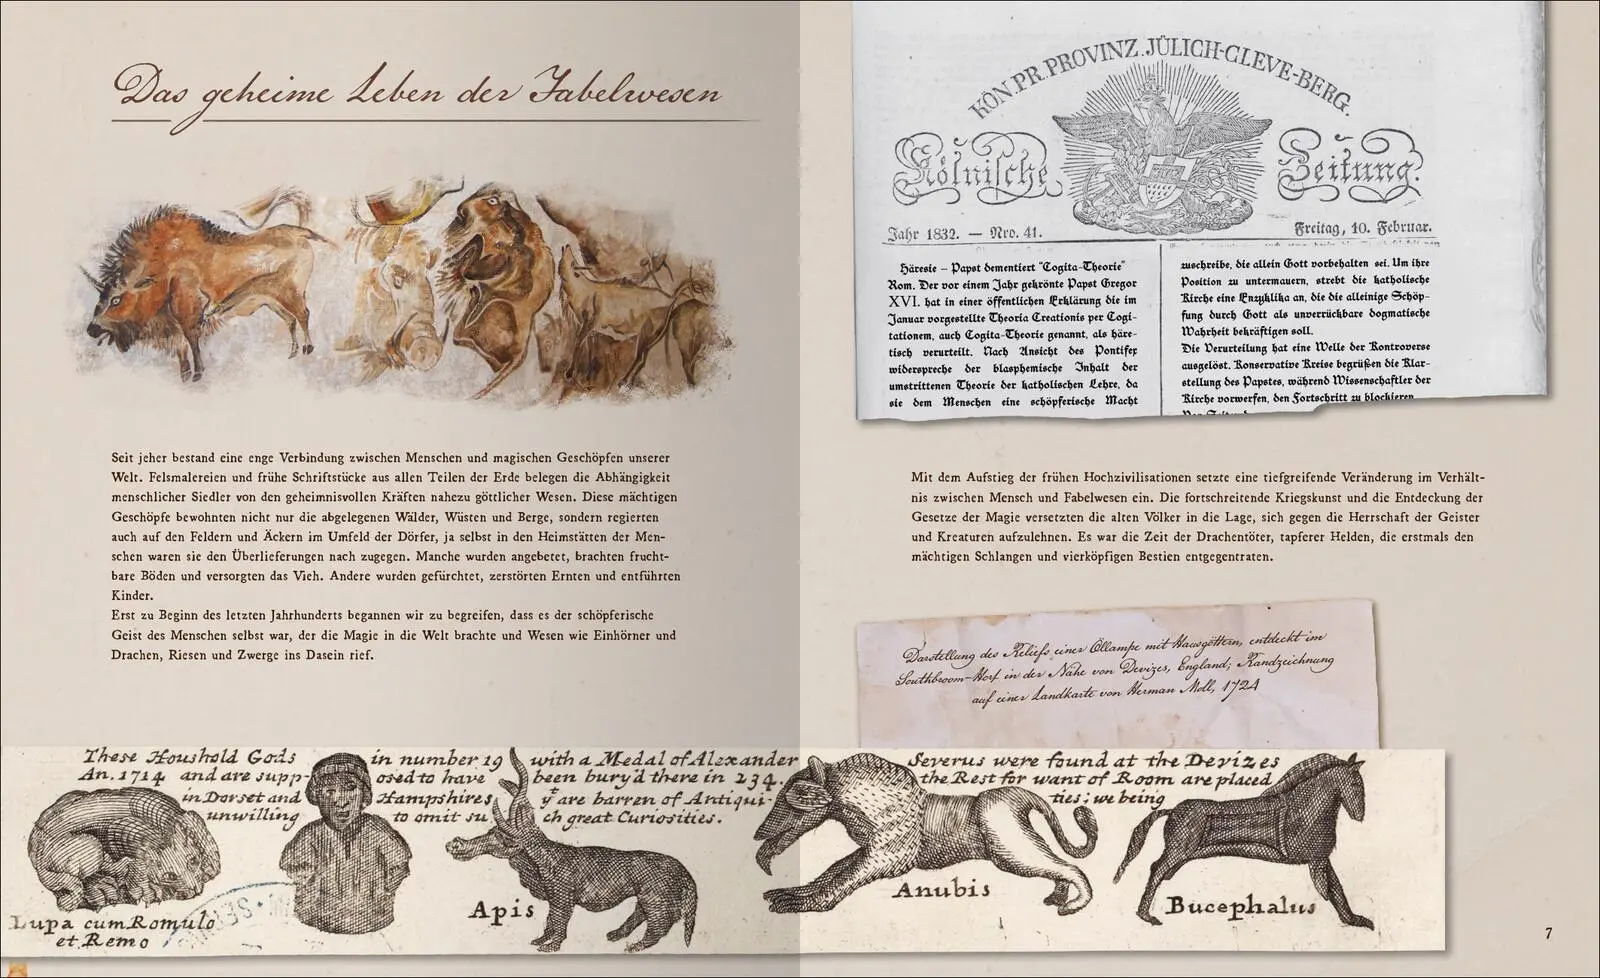 Das geheime Leben der Fabelwesen
Seit jeher bestand eine enge Verbindung zwischen Menschen und magischen Geschöpfen unserer
Welt. Felsmalereien und frühe Schriftstücke aus allen Teilen der Erde belegen die Abhängigkeit
menschlicher Siedler von den geheimnisvollen Kräften nahezu göttlicher Wesen. Diese mächtigen
Geschöpfe bewohnten nicht nur die abgelegenen Wälder, Wüsten und Berge, sondern regierten
auch auf den Feldern und Äckern im Umfeld der Dörfer, ja selbst in den Heimstätten der Men-
schen waren sie den Überlieferungen nach zugegen. Manche wurden angebetet, brachten frucht-
bare Böden und versorgten das Vieh. Andere wurden gefürchtet, zerstörten Ernten und entführten
Kinder.
Erst zu Beginn des letzten Jahrhunderts begannen wir zu begreifen, dass es der schöpferische
Geist des Menschen selbst war, der die Magie in die Welt brachte und Wesen wie Einhörner und
Drachen, Riesen und Zwerge ins Dasein rief.
KÖN. PR. PROVINZ. JÜLICH-CLEVE-BERG.
Kölnische Zeitung.
Jahr 1832. — Nro. 41. Freitag, 10. Februar.
Häresie – Papst dementiert "Cogita-Theorie"
Rom. Der vor einem Jahr gekrönte Papst Gregor
XVI. hat in einer öffentlichen Erklärung die im
Januar vorgestellte Theoria Creationis per Cogi-
tationem, auch Cogita-Theorie genannt, als häre-
tisch verurteilt. Nach Ansicht des Pontifex
widerspreche der blasphemische Inhalt der
umstrittenen Theorie der katholischen Lehre, da
sie dem Menschen eine schöpferische Macht
zuschreibe, die allein Gott vorbehalten sei. Um ihre
Position zu untermauern, strebt die katholische
Kirche eine Enzyklika an, die die alleinige Schöp-
fung durch Gott als unverrückbare dogmatische
Wahrheit bekräftigen soll.
Die Verurteilung hat eine Welle der Kontroverse
ausgelöst. Konservative Kreise begrüßen die Klar-
stellung des Papstes, während Wissenschaftler der
Kirche vorwerfen, den Fortschritt zu blockieren
Mit dem Aufstieg der frühen Hochzivilisationen setzte eine tiefgreifende Veränderung im Verhält-
nis zwischen Mensch und Fabelwesen ein. Die fortschreitende Kriegskunst und die Entdeckung der
Gesetze der Magie versetzten die alten Völker in die Lage, sich gegen die Herrschaft der Geister
und Kreaturen aufzulehnen. Es war die Zeit der Drachentöter, tapferer Helden, die erstmals den
mächtigen Schlangen und vierköpfigen Bestien entgegentraten.
Darstellung des Reliefs einer Öllampe mit Hausgöttern, entdeckt im
Southbroom-Hof in der Nähe von Devizes, England; Randzeichnung
auf einer Landkarte von Herman Moll, 1724
These Houshold Gods in number 19 with a Medal of Alexander Severus were found at the Devizes
An. 1714 and are supp- osed to have been bury'd there in 234. the Rest for want of Room are placed
in Dorset and Hampshires yt are barren of Antiqui- ties; we being
unwilling to omit su ch great Curiosities.
Lupa cum Romulo
et Remo
Apis
Anubis
Bucephalus
7